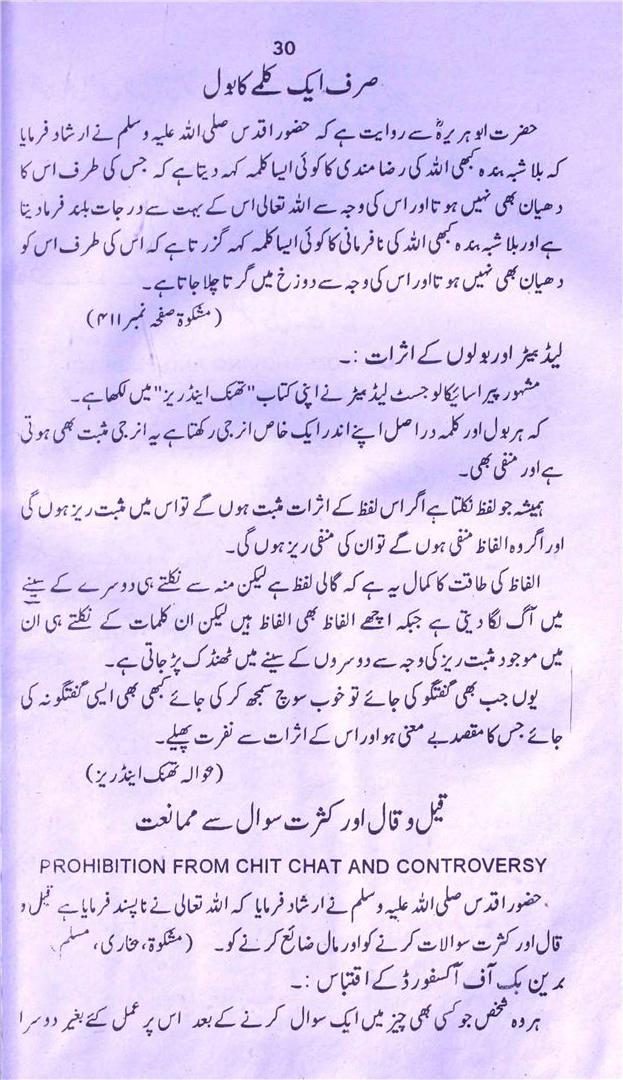 30
صرف ایک کلمے کا بول
حضرت ابو ہریرہؓ سے روایت ہے کہ حضور اقدس صلی اللہ علیہ وسلم نے ارشاد فرمایا
کہ بلا شبہ بندہ کبھی اللہ کی رضا مندی کا کوئی ایسا کلمہ کہہ دیتا ہے کہ جس کی طرف اس کا
دھیان بھی نہیں ہوتا اور اس کی وجہ سے اللہ تعالی اس کے بہت سے درجات بلند فرما دیتا
ہے اور بلا شبہ بندہ کبھی اللہ کی نافرمانی کا کوئی ایسا کلمہ کہہ گزرتا ہے کہ اس کی طرف اس کو
دھیان بھی نہیں ہوتا اور اس کی وجہ سے دوزخ میں گرتا چلا جاتا ہے۔
(مشکوۃ صفحہ نمبر ۴۱۱)
لیڈ بیٹر اور بولوں کے اثرات :۔
مشہور پیرا سائیکالوجسٹ لیڈ بیٹر نے اپنی کتاب "تھنک اینڈ ریز" میں لکھا ہے۔
کہ ہر بول اور کلمہ در اصل اپنے اندر ایک خاص انرجی رکھتا ہے یہ انرجی مثبت بھی ہوتی
ہے اور منفی بھی۔
ہمیشہ جو لفظ نکلتا ہے اگر اس لفظ کے اثرات مثبت ہوں گے تو اس میں مثبت ریز ہوں گی
اور اگر وہ الفاظ منفی ہوں گے تو ان کی منفی ریز ہوں گی۔
الفاظ کی طاقت کا کمال یہ ہے کہ گالی لفظ ہے لیکن منہ سے نکلتے ہی دوسرے کے سینے
میں آگ لگا دیتی ہے جبکہ اچھے الفاظ بھی الفاظ ہیں لیکن ان کلمات کے نکلتے ہی ان
میں موجود مثبت ریز کی وجہ سے دوسروں کے سینے میں ٹھنڈک پڑ جاتی ہے۔
یوں جب بھی گفتگو کی جائے تو خوب سوچ سمجھ کر کی جائے کبھی بھی ایسی گفتگو نہ کی
جائے جس کا مقصد بے معنی ہو اور اس کے اثرات سے نفرت پھیلے۔
(حوالہ تھنک اینڈ ریز)
قیل و قال اور کثرت سوال سے ممانعت
PROHIBITION FROM CHIT CHAT AND CONTROVERSY
حضور اقدس صلی اللہ علیہ وسلم نے ارشاد فرمایا کہ اللہ تعالی نے ناپسند فرمایا ہے قیل و
قال اور کثرت سوالات کرنے کو اور مال ضائع کرنے کو۔ (مشکوۃ، بخاری، مسلم)
برین بک آف آکسفورڈ کے اقتباس :۔
ہر وہ شخص جو کسی بھی چیز میں ایک سوال کرنے کے بعد اس پر عمل کئے بغیر دوسرا